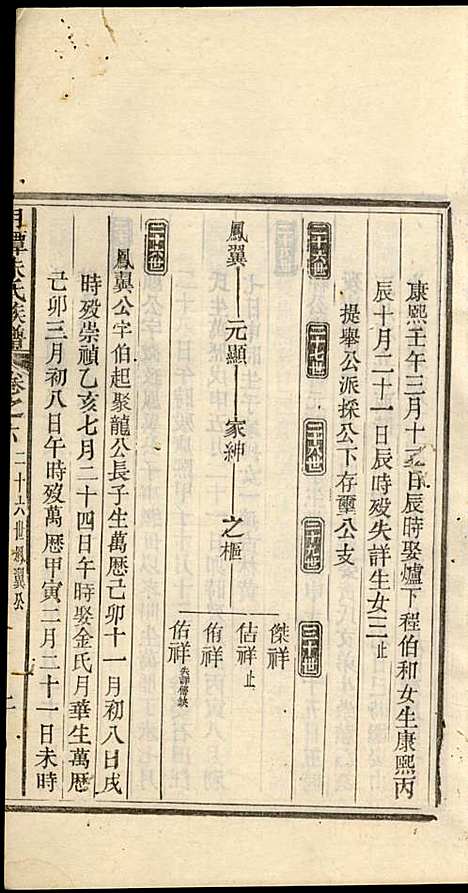 康熙壬午三月十
日辰時娶爐下程伯和女生康熙丙
辰十月二十一日辰時歿失詳生女二止
提舉公派探公下存璽公支
二十六世
二十七世
二十八世
二十九世
三十世
鳳翼
元顯
家紳
之樞
傑祥
佶祥止
侑祥
佑祥失詳傳缺
二十六世
鳳翼公字伯起聚龍公長子生萬歷己卯十一月初八日戌
時歿崇禎乙亥七月二十四日午時娶金氏月華生萬歷
己卯三月初八日午時歿萬歷甲寅二月二十一日未時
月潭朱氏族譜
卷之六
二十六世鳳翼公